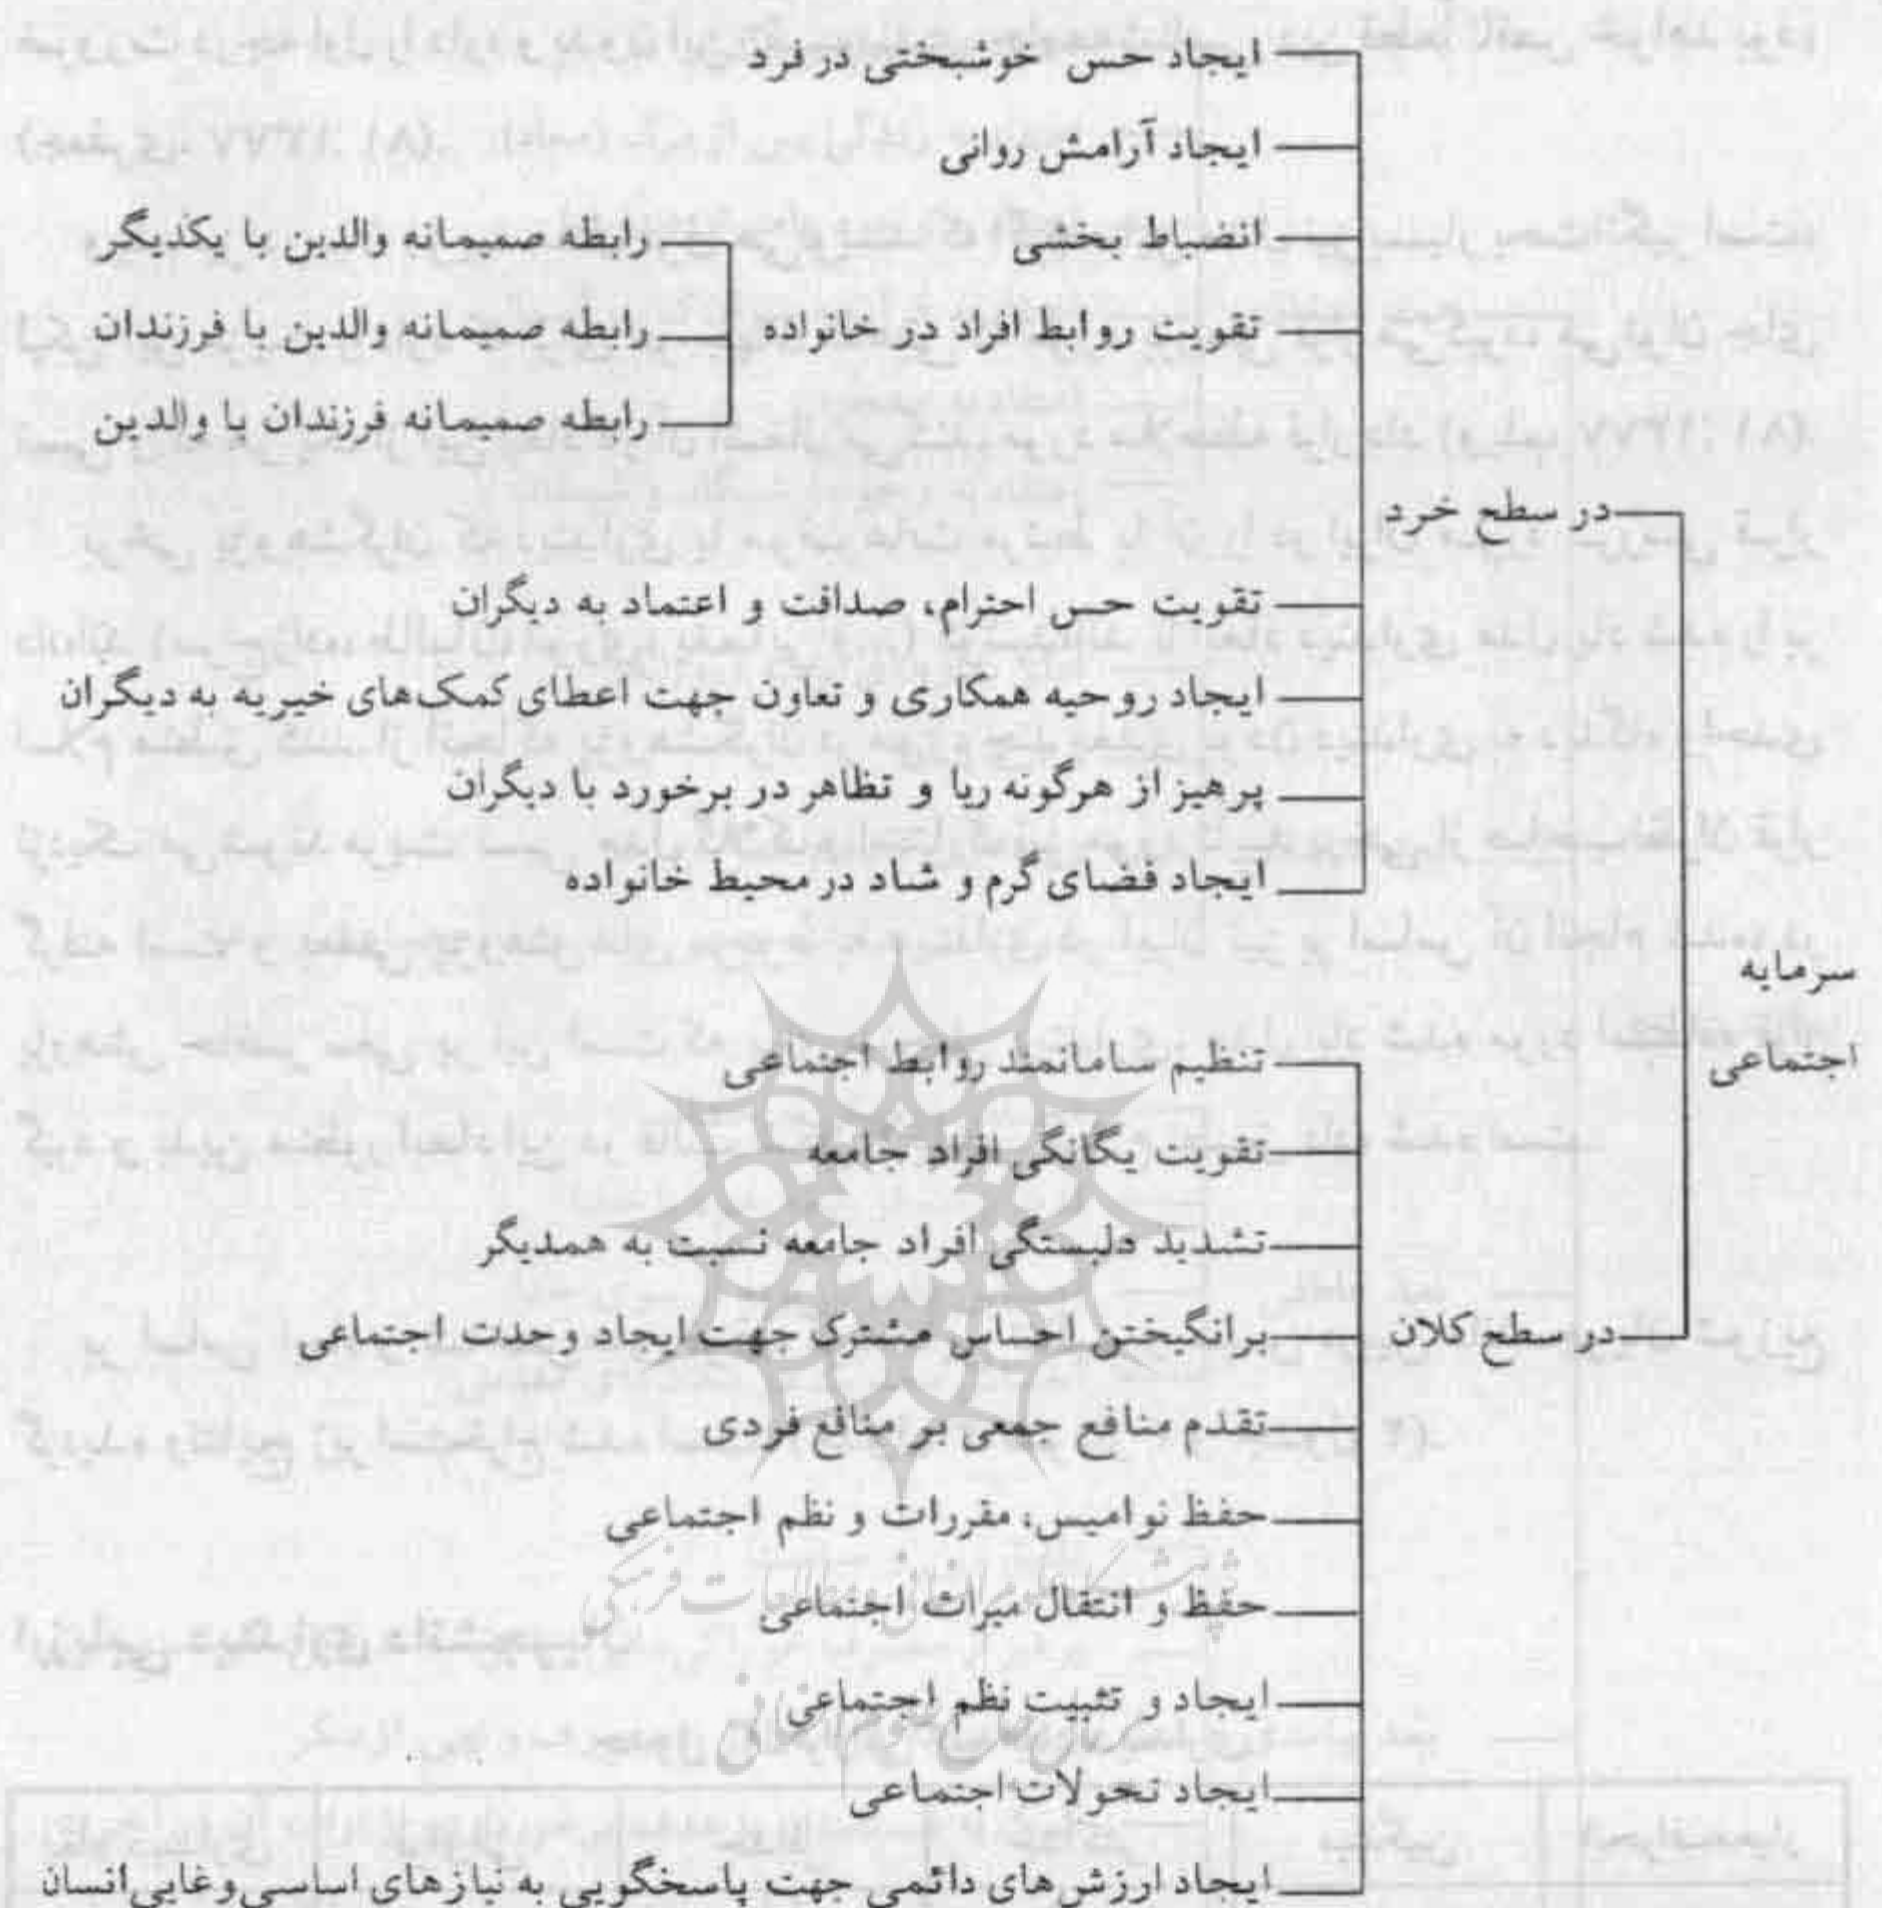 ایجاد حس خوشبختی در فرد
ایجاد آرامش روانی
انضباط بخشی
تقویت روابط افراد در خانواده
رابطه صمیمانه والدین با یکدیگر
رابطه صمیمانه والدین با فرزندان
رابطه صمیمانه فرزندان با والدین
در سطح خرد
تقویت حس احترام، صداقت و اعتماد به دیگران
ایجاد روحیه همکاری و تعاون جهت اعطای کمک‌های خیریه به دیگران
پرهیز از هرگونه ریا و تظاهر در برخورد با دیگران
ایجاد فضای گرم و شاد در محیط خانواده
سرمایه
اجتماعی
تنظیم سامانمند روابط اجتماعی
تقویت یگانگی افراد جامعه
تشدید دلبستگی افراد جامعه نسبت به همدیگر
در سطح کلان
برانگیختن احساس مشترک جهت ایجاد وحدت اجتماعی
تقدم منافع جمعی بر منافع فردی
حفظ نوامیس، مقررات و نظم اجتماعی
حفظ و انتقال میراث اجتماعی
ایجاد و تثبیت نظم اجتماعی
ایجاد تحولات اجتماعی
ایجاد ارزش‌های دائمی جهت پاسخگویی به نیازهای اساسی و غایی انسان
پژوهشگاه علوم انسانی و مطالعات فرهنگی
پرتال جامع علوم انسانی